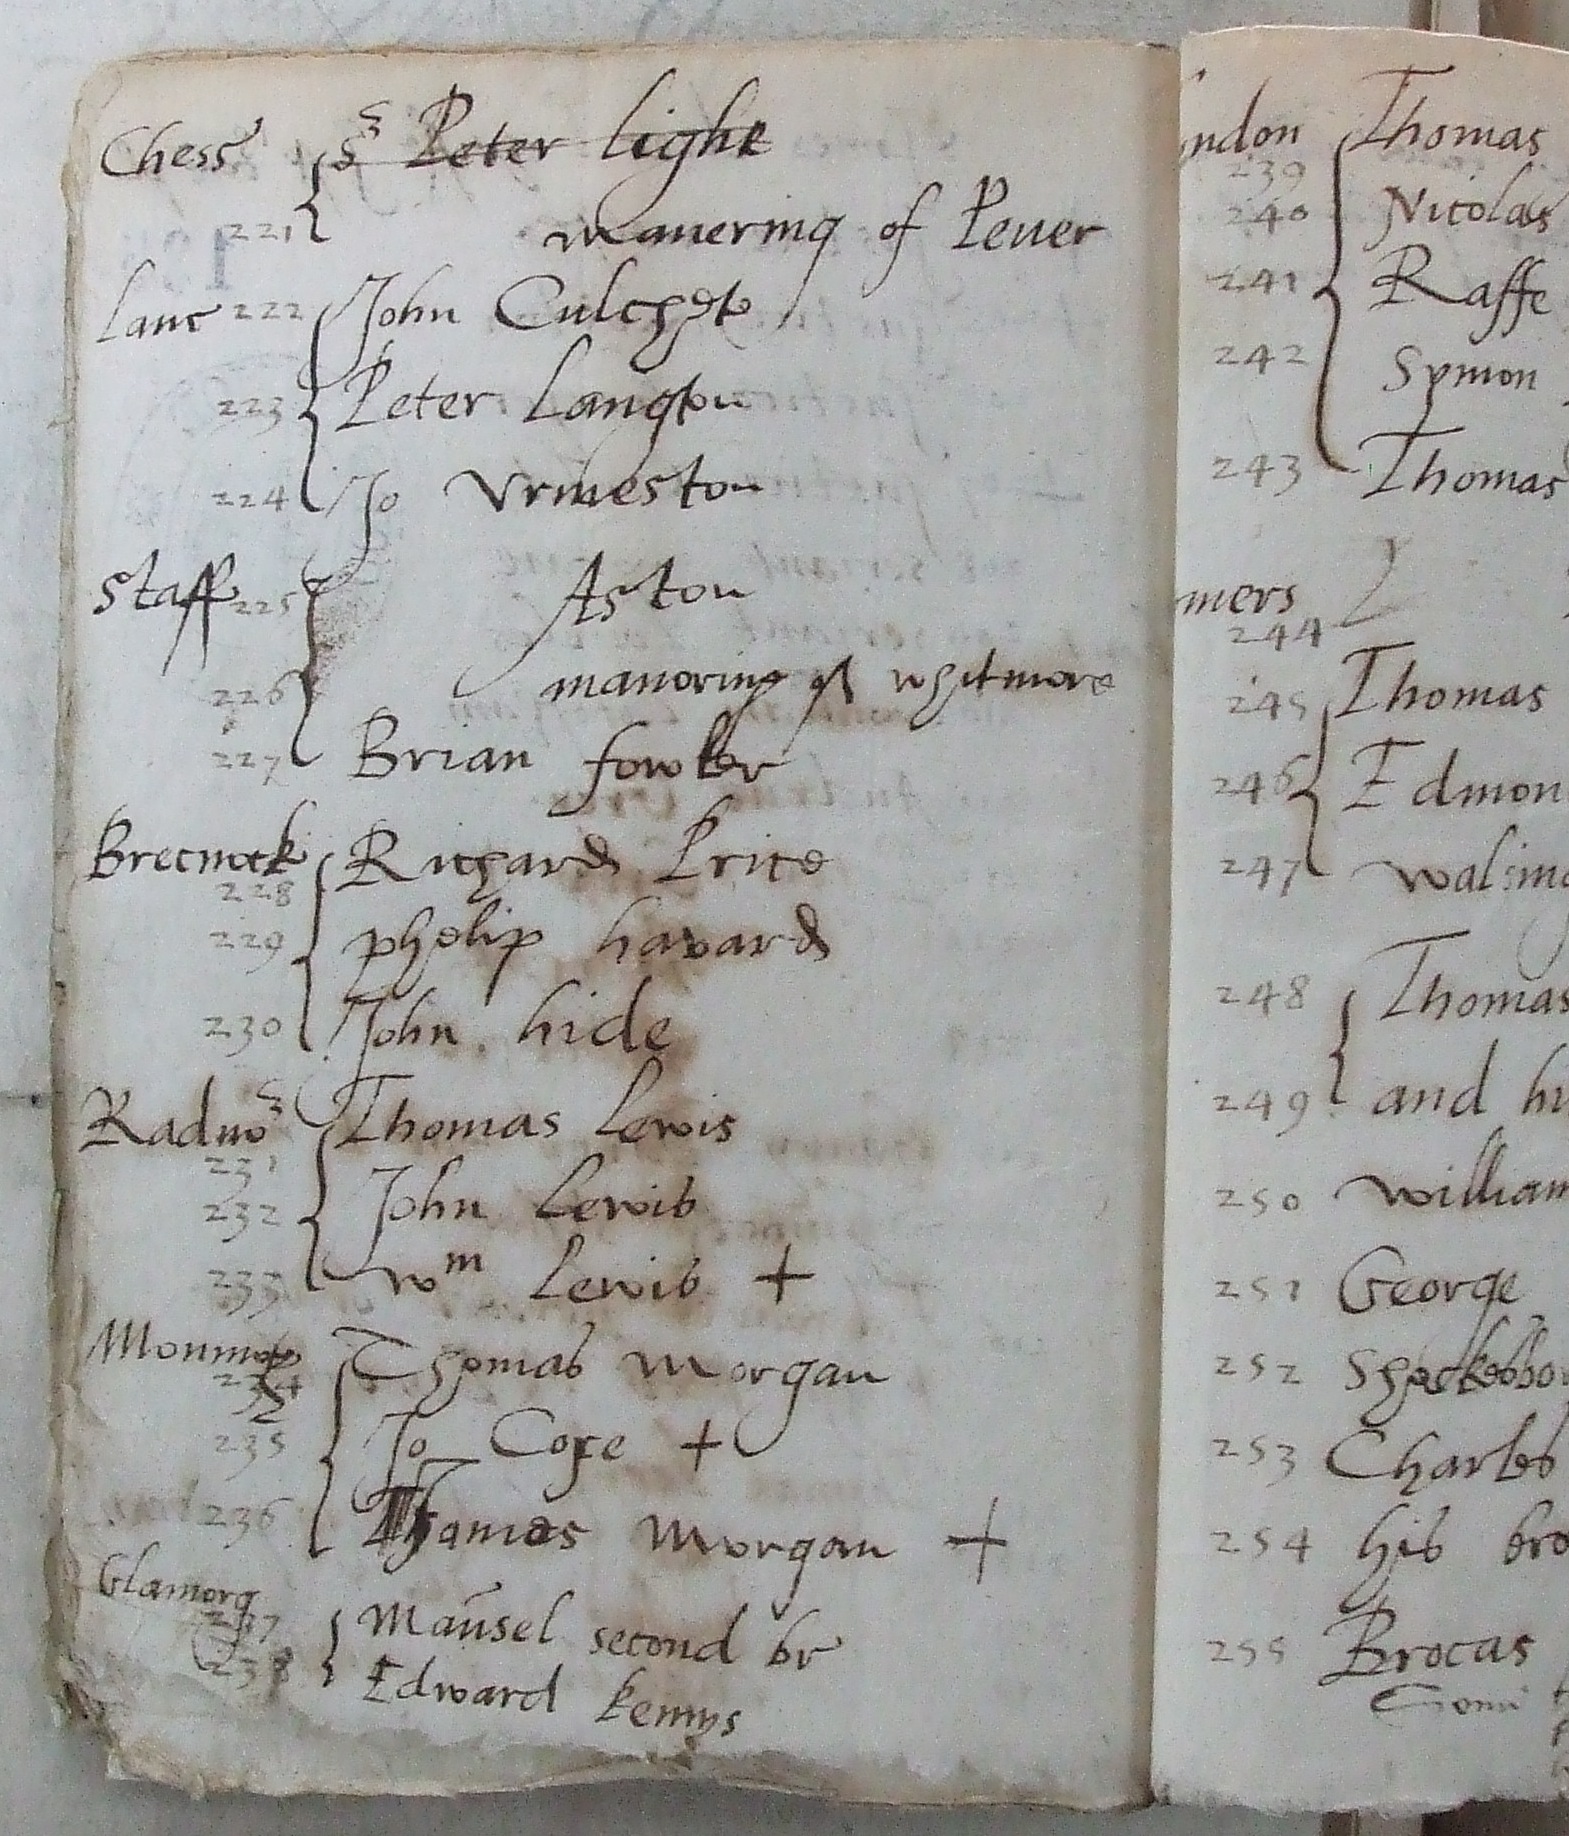 Chess S Peter lighe
221 manering of Pener
Lanc 222 John Culchet
223 Peter Langton
224 Jo Vrmeston
Staff 225 Aston
226 manoring of whitmore
227 Brian fowker
Brecnock Richard Price
228
229 phelip havard
230 John hide
Radno Thomas Lewis
231
232 John Lewis
233 Wm Lewis +
Monmoth Thomas Morgan
234
235 Jo Cope +
236 James Morgan +
Glamorg
237 Mansel second br
238 Edward kemys
ndon Thomas
239
240 Nicolas
241 Raffe
242 Symon
243 Thomas
mers
244
245 Thomas
246 Edmon
247 walsing
248 Thomas
249 and hi
250 william
251 George
252 Shackesbor
253 Charles
254 his bro
255 Brocas